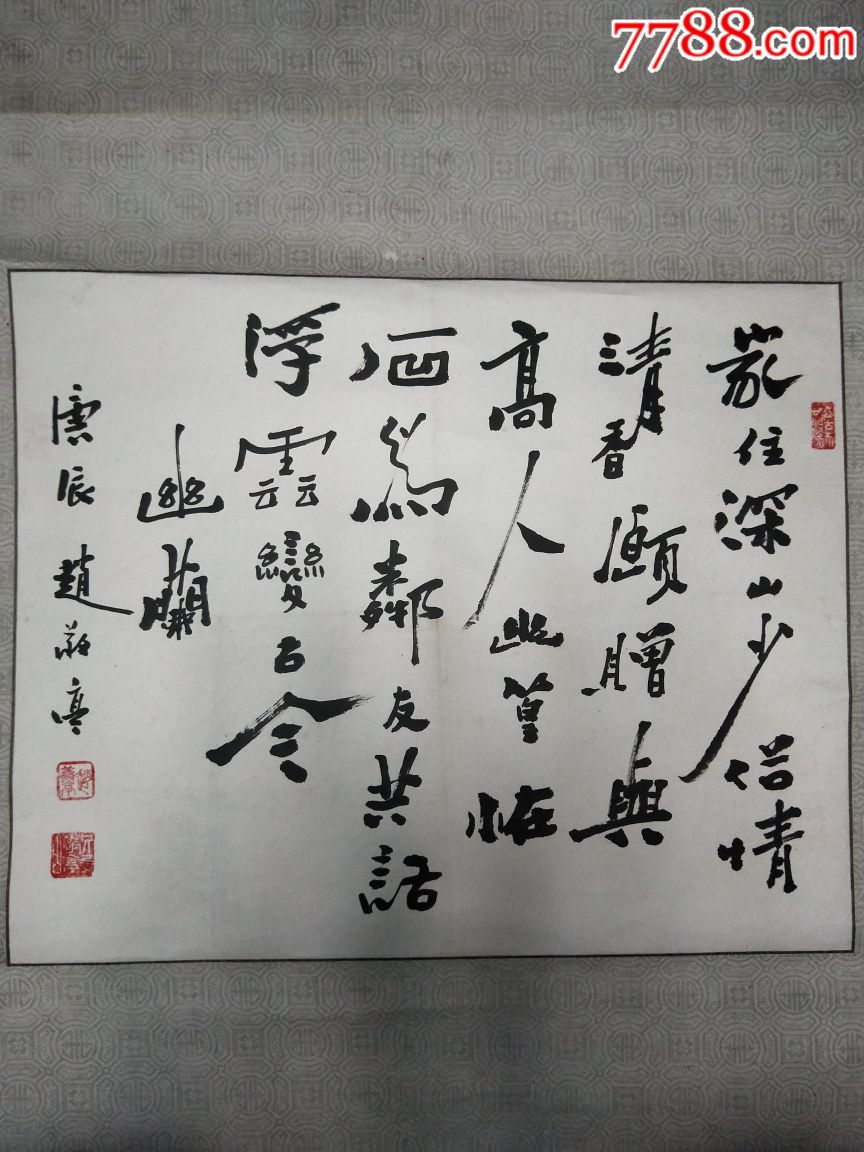 7788.com
家住深山少俗情
清香願贈與
高人幽篁恠
石為鄰友共話
浮雲變古今
幽蘭
趙敬亭